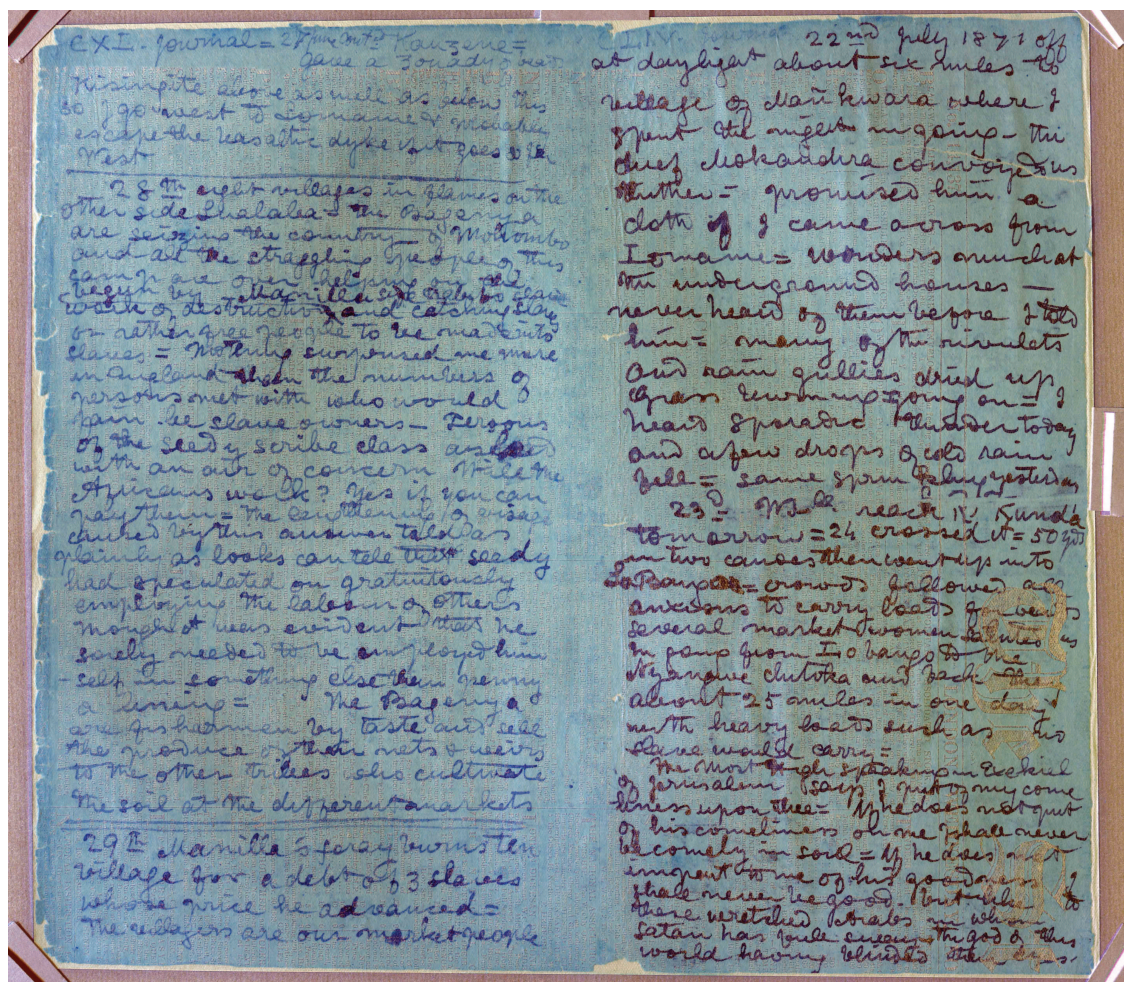 CXL. Journal = 27 June Kauzene =
gave a
Kisingite above as well as below this
so I go west to Lomame & probably
escape the basaltic dyke but goes so far
West
28th eight villages in flames on the
other side Lualaba = the Bagenya
are seizing the country of Molombo
and all the straggling people of this
camp are over helping on the
begun by Manilla
work of destruction and catching slaves
or rather free people to be made into
slaves = Nothing surprised me more
in England than the numbers of
persons met with who would
fain be slave owners =
of the seedy scribe class asked
with an air of concern Will the
Africans work? Yes if you can
pay them = the lengthening of visage
caused by this answer told as
plainly as looks can tell that seedy
had speculated on gratuitously
employing the labour of others
though it was evident that he
sorely needed to be employed him
-self in something else than penny
a lining = The Bagenya
are fishermen by taste and sell
the produce of their nets & weirs
to the other tribes who cultivate
the soil at the different markets
29th Manilla's foray burns ten
village for a debt of 3 slaves
whose price he advanced =
The villagers are our market people
CLIV. Journal 22nd July 1871 off
at daylight about six miles to
village of Mañkwara where I
spent the night in going - the
chief Mokandira convoyed us
thither = promised him a
cloth if I came across from
Lomame = wonders much at
the underground houses —
never heard of them before I told
him = many of the rivulets
and rain gullies dried up
Grass burning going on = I
heard sporadic thunder today
and a few drops of cold rain
fell = same yesterday
23d Will reach R. Kunda
tomorrow = 24 crossed it = 50 yds
in two canoes then went up into
= crowds followed all
anxious to carry loads for beads
several market women saluted us
to the
Nyangwe chitoka and back
about 25 miles in one day
with heavy loads such as no
slave would carry =
The Most High speaking in Ezekiel
of Jerusalem says I put of my come
liness upon thee = If he does not put
of his comeliness on me I shall never
be comely in soul = If he does not
impart to me of his goodness I
shall never be good. but like to
these wretched Arabs in whom
Satan has full sway - the god of this
world having blinded their eyes.